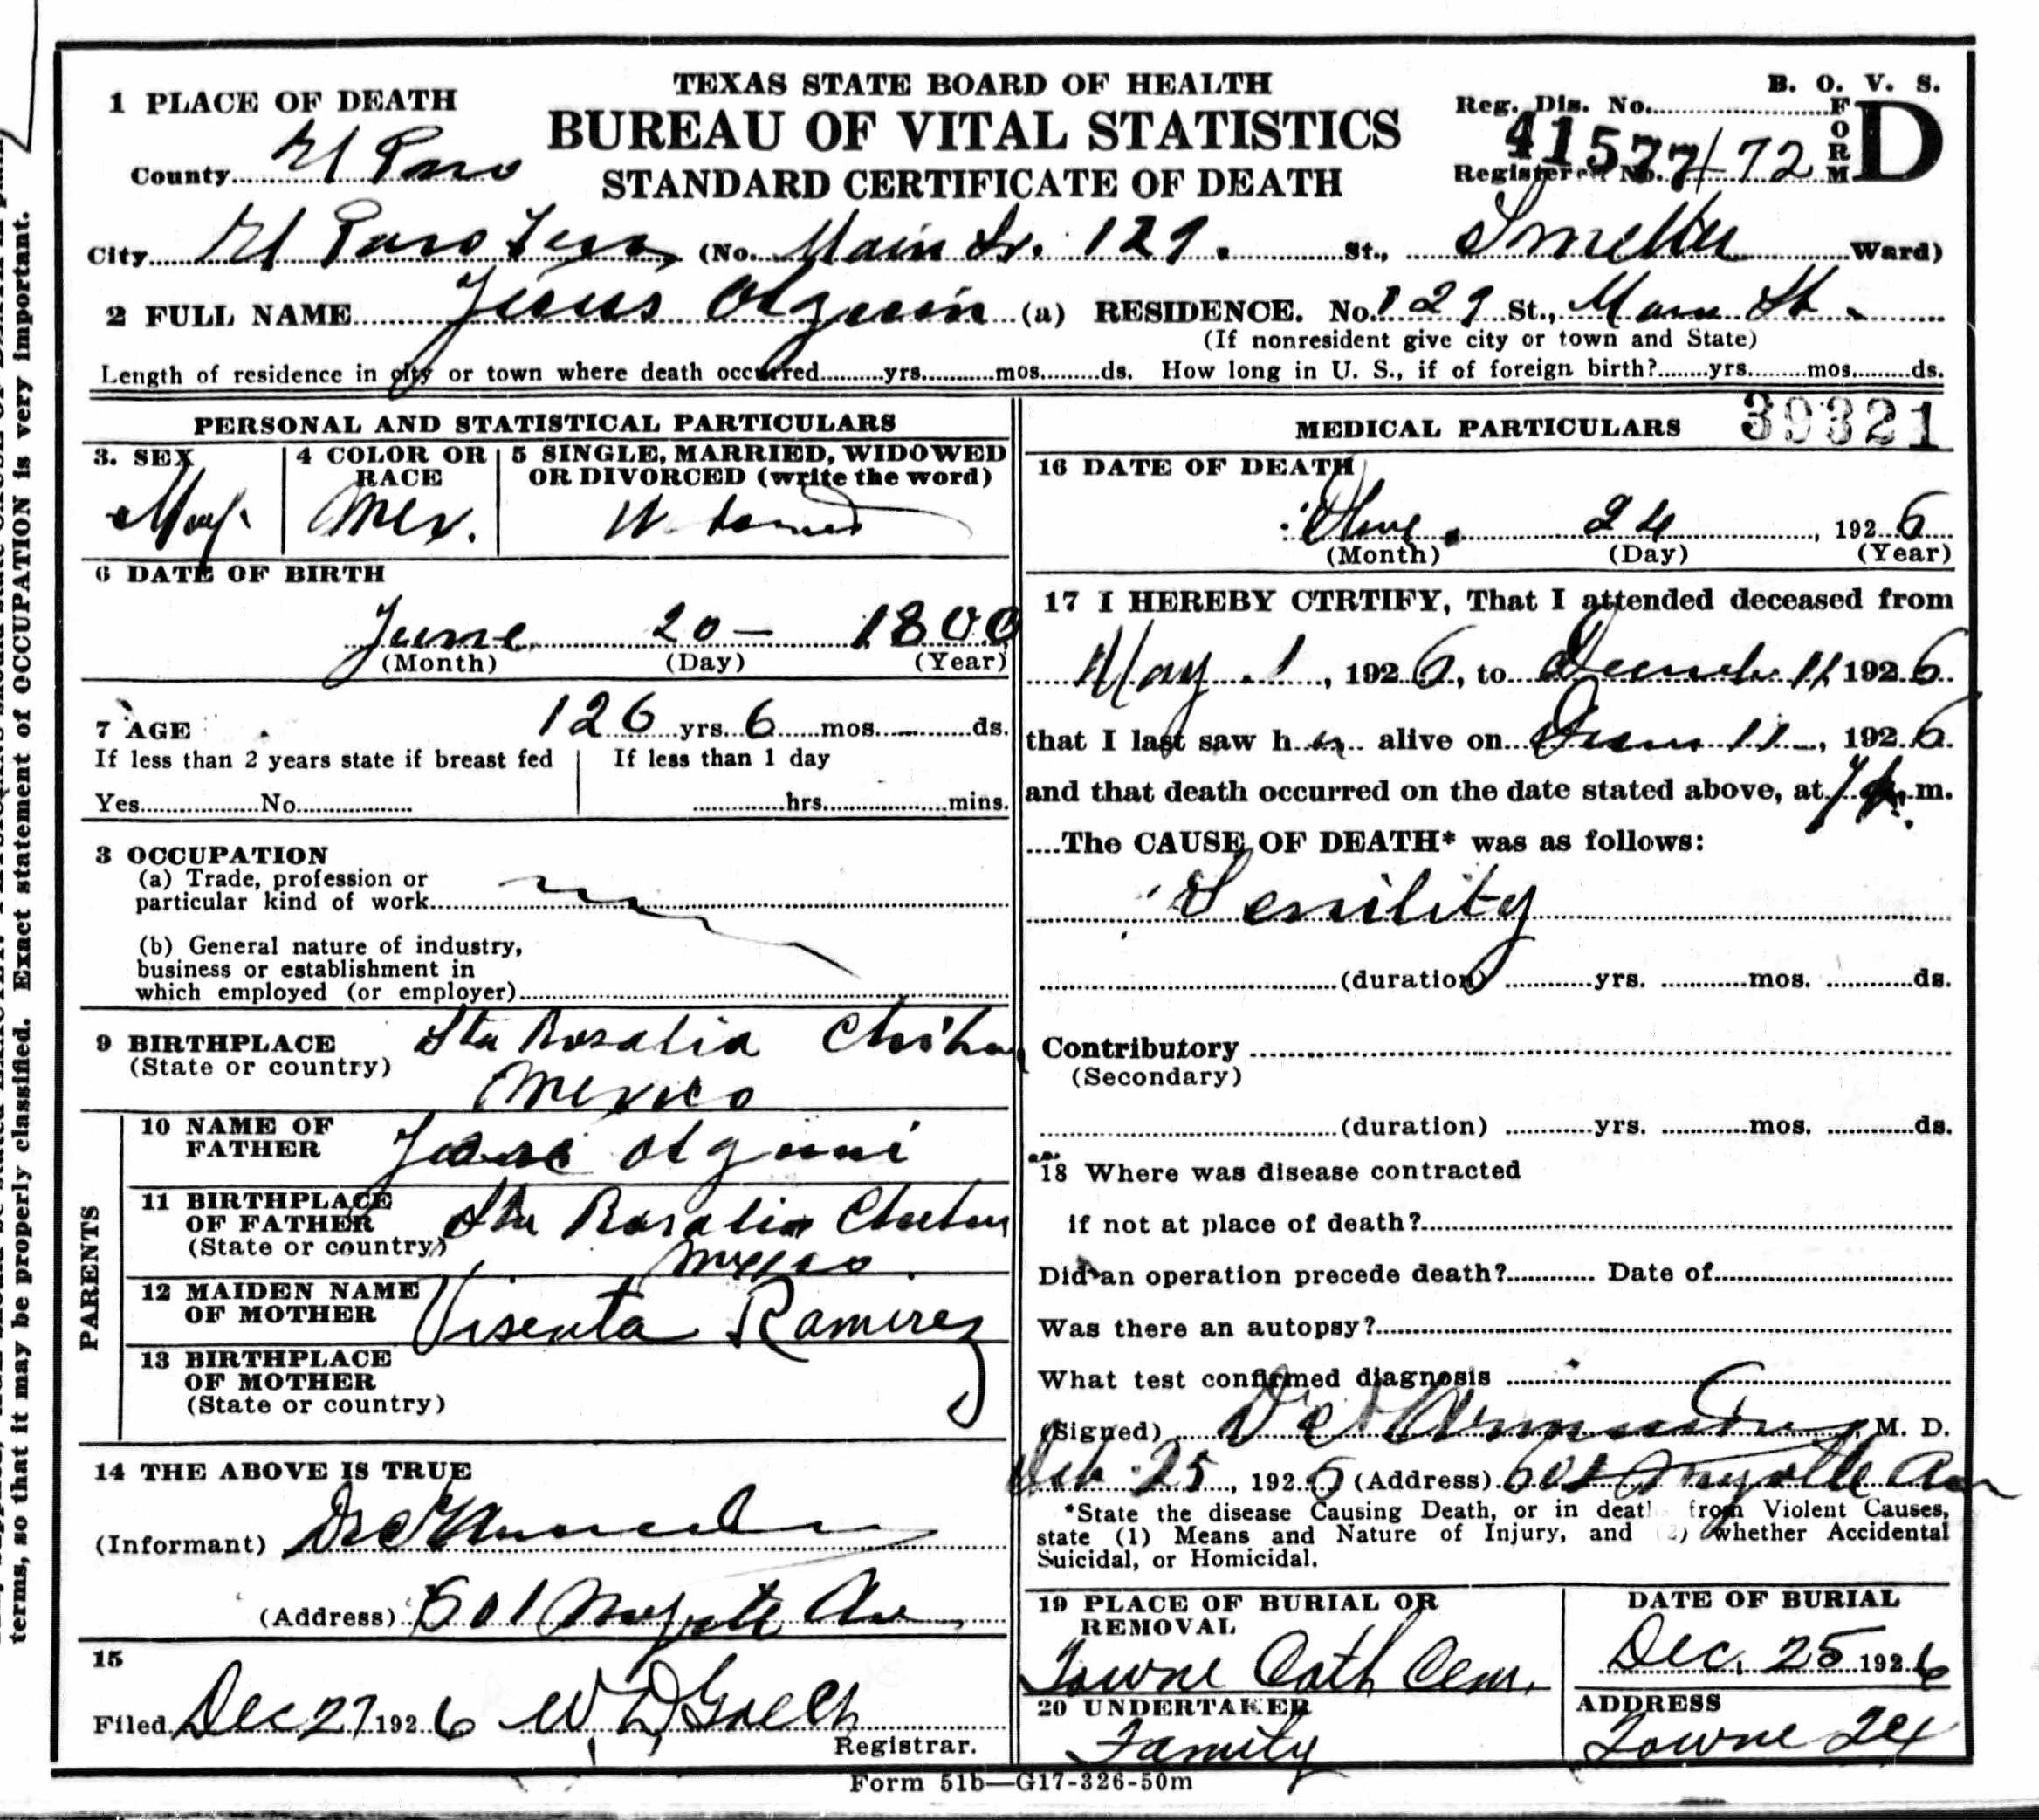 B. O. V. S.
1 PLACE OF DEATH
TEXAS STATE BOARD OF HEALTH
Reg. Dis. No.
FORM D
BUREAU OF VITAL STATISTICS
41577
County El Paso
Registered No. 172
STANDARD CERTIFICATE OF DEATH
City El Paso Texas (No. Main St. 129 St., Smelter Ward)
2 FULL NAME Jesus Olguin (a) RESIDENCE. No. 129 St., Main St.
(If nonresident give city or town and State)
Length of residence in city or town where death occurred yrs. mos. ds. How long in U. S., if of foreign birth? yrs. mos. ds.
PERSONAL AND STATISTICAL PARTICULARS
3. SEX
4 COLOR OR RACE
Mex.
5 SINGLE, MARRIED, WIDOWED
OR DIVORCED (write the word)
6 DATE OF BIRTH
June 20 — 1800
(Month) (Day) (Year)
7 AGE 126 yrs. 6 mos. ds.
If less than 2 years state if breast fed
Yes No
If less than 1 day
hrs. mins.
3 OCCUPATION
(a) Trade, profession or
particular kind of work
(b) General nature of industry,
business or establishment in
which employed (or employer)
9 BIRTHPLACE Sta Rosalia Chihu
(State or country) Mexico
PARENTS
10 NAME OF
FATHER Olguin
11 BIRTHPLACE
OF FATHER Sta Rosalia
(State or country) Mexico
12 MAIDEN NAME
OF MOTHER Visenta Ramirez
13 BIRTHPLACE
OF MOTHER
(State or country)
14 THE ABOVE IS TRUE
(Informant)
(Address) 601 Myrtle Ave
15
Filed Dec 27 1926
Registrar.
MEDICAL PARTICULARS 39321
16 DATE OF DEATH
24, 1926
(Month) (Day) (Year)
17 I HEREBY CTRTIFY, That I attended deceased from
May 1, 1926, to 11, 1926
that I last saw h alive on 11, 1926.
and that death occurred on the date stated above, at m.
The CAUSE OF DEATH* was as follows:
Senility
(duration) yrs. mos. ds.
Contributory
(Secondary)
(duration) yrs. mos. ds.
18 Where was disease contracted
if not at place of death?
Did an operation precede death? Date of
Was there an autopsy?
What test confirmed diagnosis
(Signed) M. D.
25, 192 (Address) 601 Myrtle Ave
*State the disease Causing Death, or in death from Violent Causes,
state (1) Means and Nature of Injury, and (2) whether Accidental
Suicidal, or Homicidal.
19 PLACE OF BURIAL OR
REMOVAL
Towne Cath Cem.
DATE OF BURIAL
Dec. 25 1926
20 UNDERTAKER
Family
ADDRESS
Towne Tex
Form 51b—G17-326-50m
terms, so that it may be properly classified. Exact statement of OCCUPATION is very important.